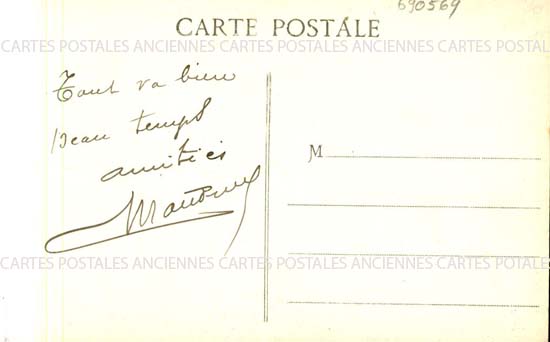 690569
CARTE POSTALE
CARTES POSTALES ANCIENNES CARTES POSTALES ANCIENNES CARTES POSTALES
Tout va bien
beau temps
amitiés
M
CARTES POSTALES ANCIENNES CARTES POSTALES ANCIENNES CARTES POSTALES